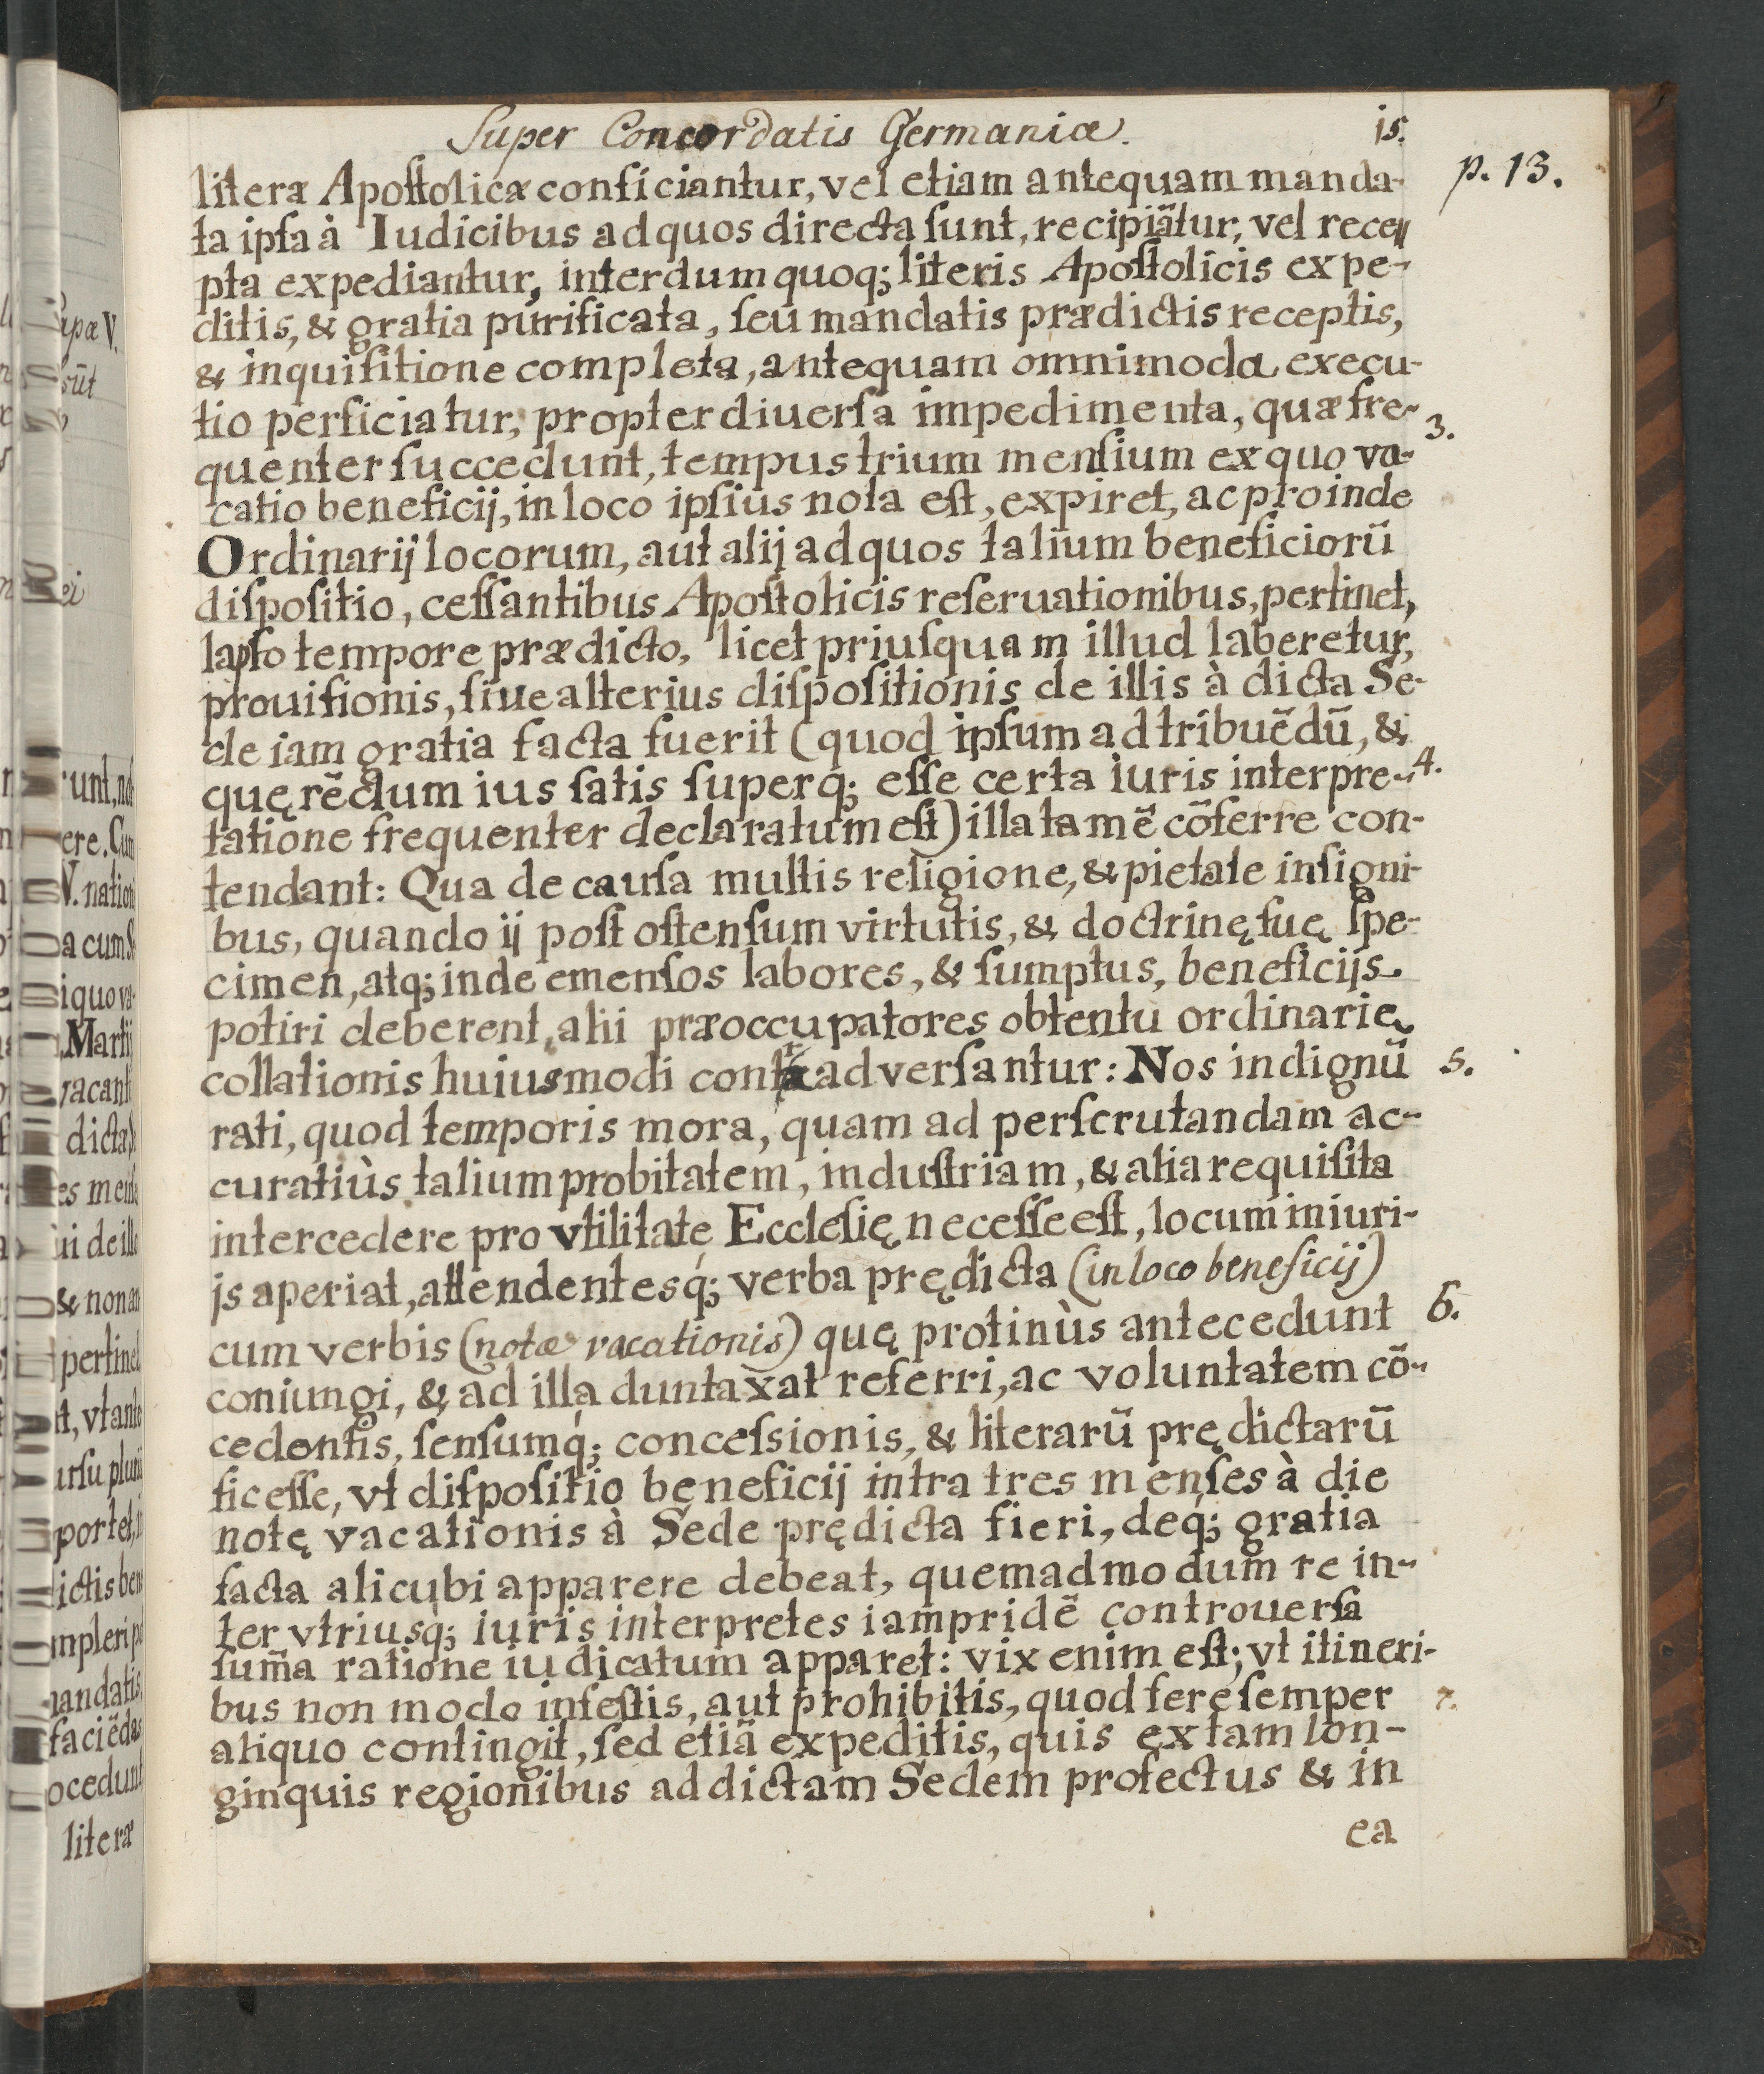 Super Concordatis Germaniæ. 15.
p. 13.
literæ Apostolicæ conficiantur, vel etiam antequam manda-
ta ipsa à Iudicibus ad quos directa sunt, recipiātur, vel rece⸗
pta expediantur, interdum quoq; literis Apostolicis expe-
ditis, & gratia purificata, seu mandatis prædictis receptis,
& inquisitione completa, antequam omnimoda execu-
tio perficiatur, propter diuersa impedimenta, quæ fre-
3.
quenter succedunt, tempus trium mensium ex quo va-
catio beneficij, in loco ipsius nota est, expiret, ac proinde
Ordinarij locorum, aut alij ad quos talium beneficiorū
dispositio, cessantibus Apostolicis reseruationibus, pertinet,
lapso tempore prædicto, licet priusquam illud laberetur,
prouisionis, siue alterius dispositionis de illis à dicta Se-
de iam gratia facta fuerit (quod ipsum ad tribuēdū, &
quęrēdum ius satis superq; esse certa iuris interpre- 4.
tatione frequenter declaratum est) illa tamē cōferre con-
tendant: Qua de causa multis religione, & pietate insigni-
bus, quando ij post ostensum virtutis, & doctrinę suę spe-
cimen, atq; inde emensos labores, & sumptus, beneficijs
potiri deberent, alii præoccupatores obtentu ordinarię
collationis huiusmodi contr adversantur: Nos indignū 5.
rati, quod temporis mora, quam ad perscrutandam ac-
curatiùs talium probitatem, industriam, & alia requisita
intercedere pro vtilitate Ecclesię necesse est, locum iniuri-
js aperiat, attendentesq́; verba prędicta (in loco beneficij)
cum verbis (notæ vacationis) quę protinùs antecedunt 6.
coniungi, & ad illa duntaxat referri, ac voluntatem cō-
cedentis, sensumq́; concessionis, & literarū prędictarū
sic esse, vt dispositio beneficij intra tres menses à die
notę vacationis à Sede prędicta fieri, deq́; gratia
facta alicubi apparere debeat, quemadmodum re in-
ter vtriusq́; iuris interpretes iampridē controuersa
sum̄a ratione iudicatum apparet: vix enim est; vt itineri-
bus non modo infestis, aut prohibitis, quod fere semper 7.
aliquo contingit, sed etiā expeditis, quis ex tam lon-
ginquis regionibus ad dictam Sedem profectus & in
ea